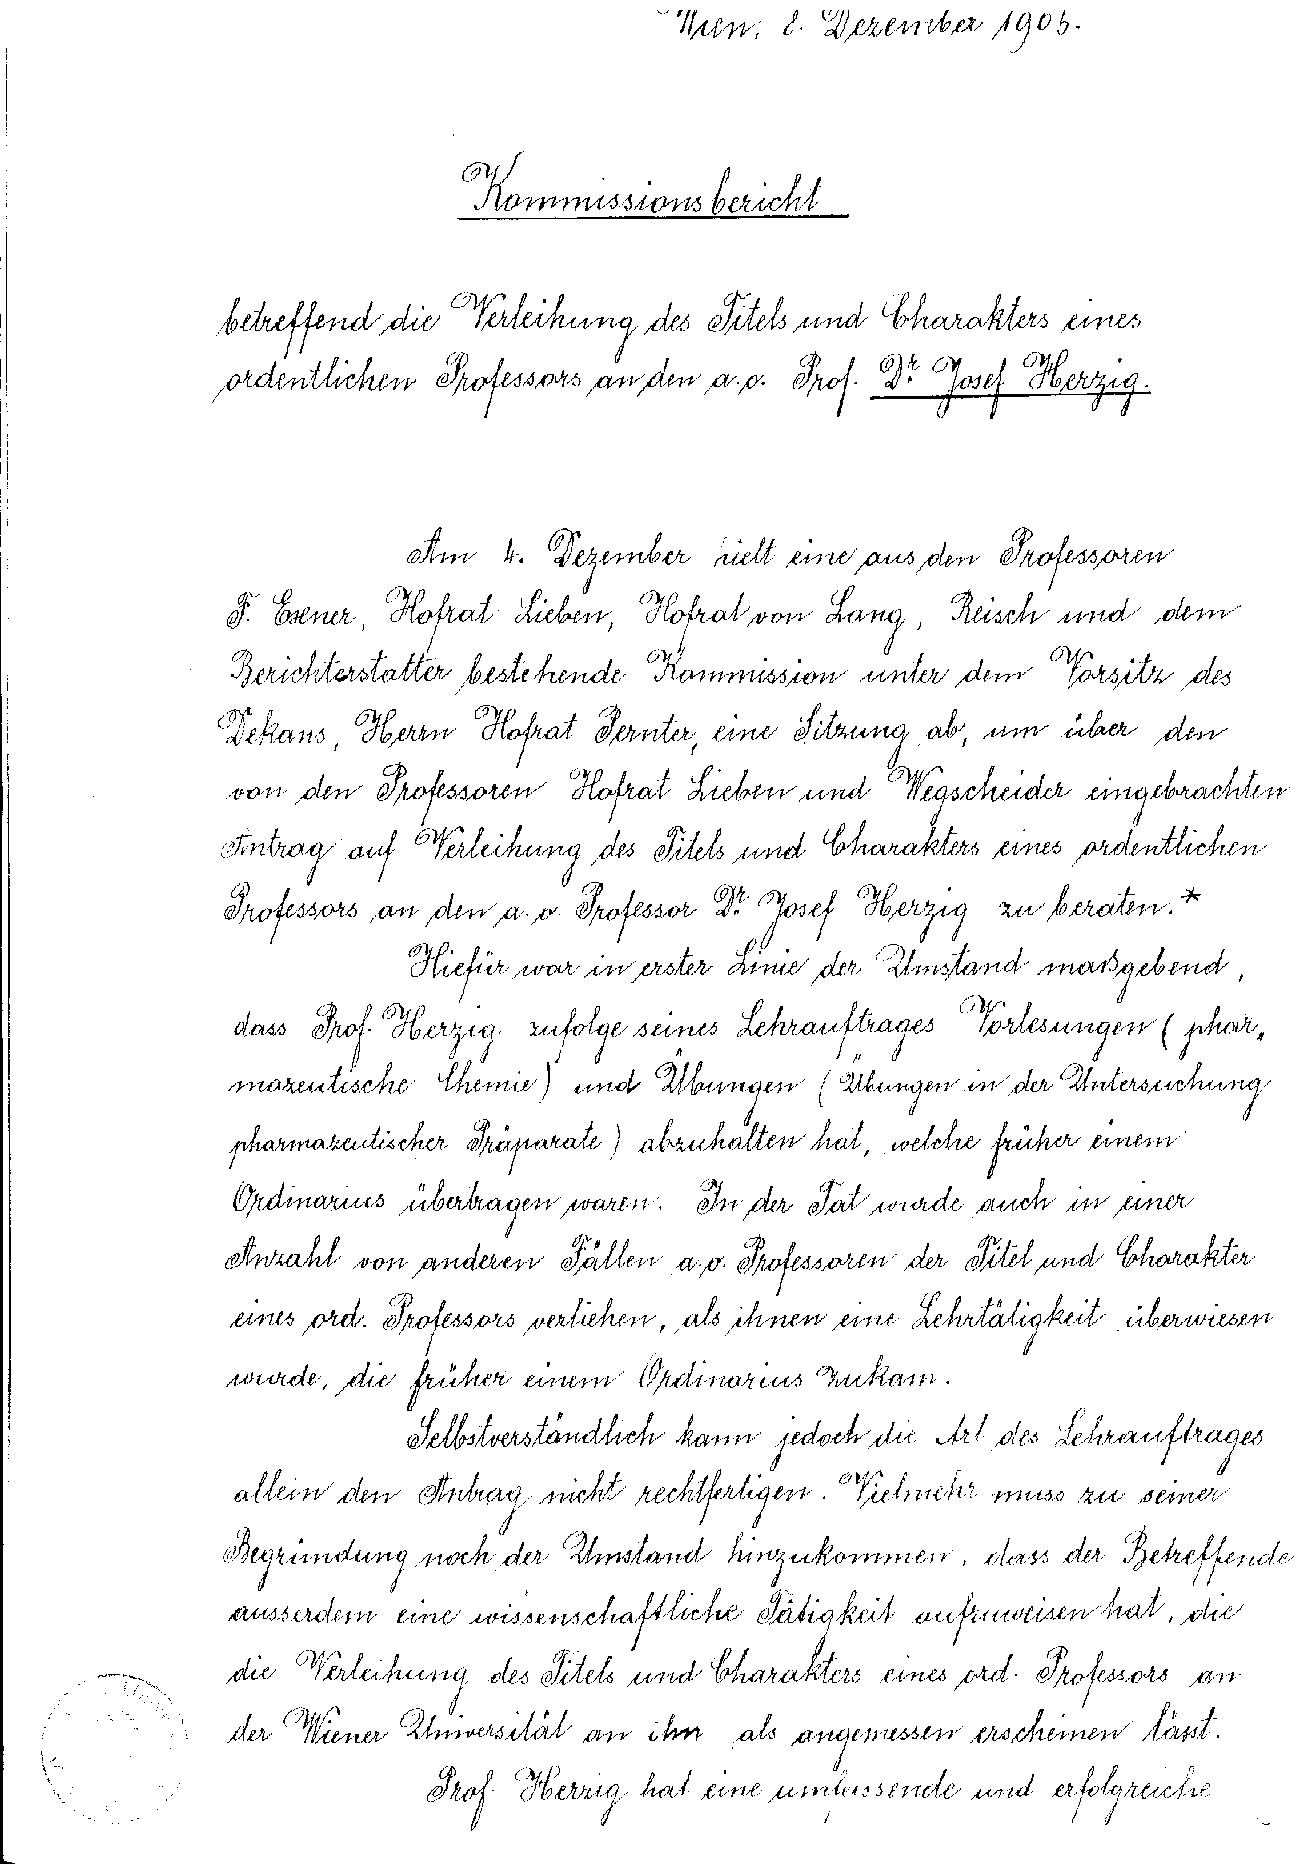 Wien, 2. Dezember 1905.
Kommissionsbericht
betreffend die Verleihung des Titels und Charakters eines
ordentlichen Professors an den a. o. Prof. Dr. Josef Herzig.
Am 4. Dezember hielt eine aus den Professoren
F. Exner, Hofrat Lieben, Hofrat von Lang, Reisch und dem
Berichterstatter bestehende Kommission unter dem Vorsitz des
Dekans, Herrn Hofrat Pernter, eine Sitzung ab, um über den
von den Professoren Hofrat Lieben und Wegscheider eingebrachten
Antrag auf Verleihung des Titels und Charakters eines ordentlichen
Professors an den a. o. Professor Dr. Josef Herzig zu beraten.*
Hiefür war in erster Linie der Umstand maßgebend,
dass Prof. Herzig zufolge seines Lehrauftrages Vorlesungen (phar„
mazeutische Chemie) und Übungen (Übungen in der Untersuchung
pharmazeutischer Präparate) abzuhalten hat, welche früher einem
Ordinarius übertragen waren. In der Tat wurde auch in einer
Anzahl von anderen Fällen a. o. Professoren der Titel und Charakter
eines ord. Professors verliehen, als ihnen eine Lehrtätigkeit überwiesen
wurde, die früher einem Ordinarius zukam.
Selbstverständlich kann jedoch die Art des Lehrauftrages
allein den Antrag nicht rechtfertigen. Vielmehr muss zu seiner
Begründung noch der Umstand hinzukommen, dass der Betreffende
ausserdem eine wissenschaftliche Tätigkeit aufzuweisen hat, die
die Verleihung des Titels und Charakters eines ord. Professors an
der Wiener Universität an ihn als angemessen erscheinen lässt.
Prof. Herzig hat eine umfassende und erfolgreiche